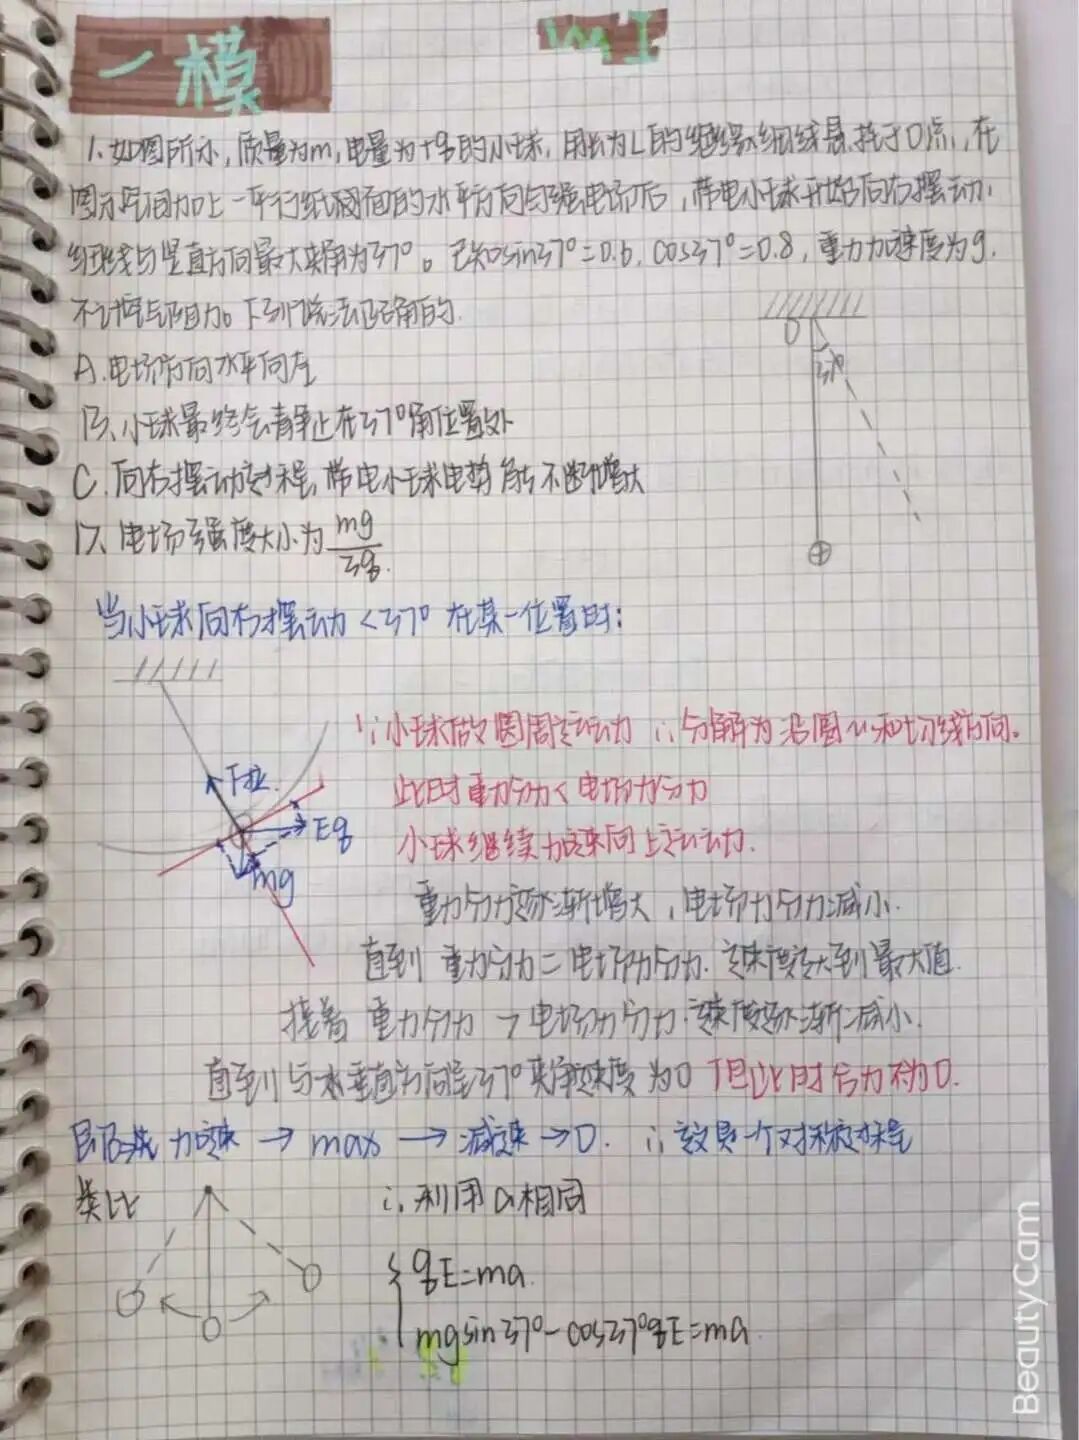 一模
1.如图所示,质量为m,电量为+q的小球,用长为L的绝缘细线悬挂于O点,在
图示空间加上一平行纸面的水平方向匀强电场后,带电小球开始向右摆动.
细线与竖直方向最大夹角为37°。已知sin37°=0.6,cos37°=0.8,重力加速度为g.
不计空气阻力。下列说法正确的.
O
37°
A.电场方向水平向左
B、小球最终会静止在37°角位置处
C.向右摆动过程,带电小球电势能不断增大
D、电场强度大小为mg/3q.
当小球向右摆动<37°在某一位置时:
∵小球做圆周运动 ∴分解为沿圆心和切线方向。
T拉.
此时重力分力<电场力分力
Eq
小球继续加速向上运动.
mg
重力分力逐渐增大,电场力分力减小.
直到 重力分力=电场力分力.速度达到最大值.
接着 重力分力>电场力分力.速度逐渐减小.
直到与竖直方向呈37°夹角速度为0 但此时合力不为0.
即 加速→max→减速→0. ∴这是一个对称过程
类比
∴利用a相同
{qE=ma.
mgsin37°-cos37°qE=ma.
BeautyCam